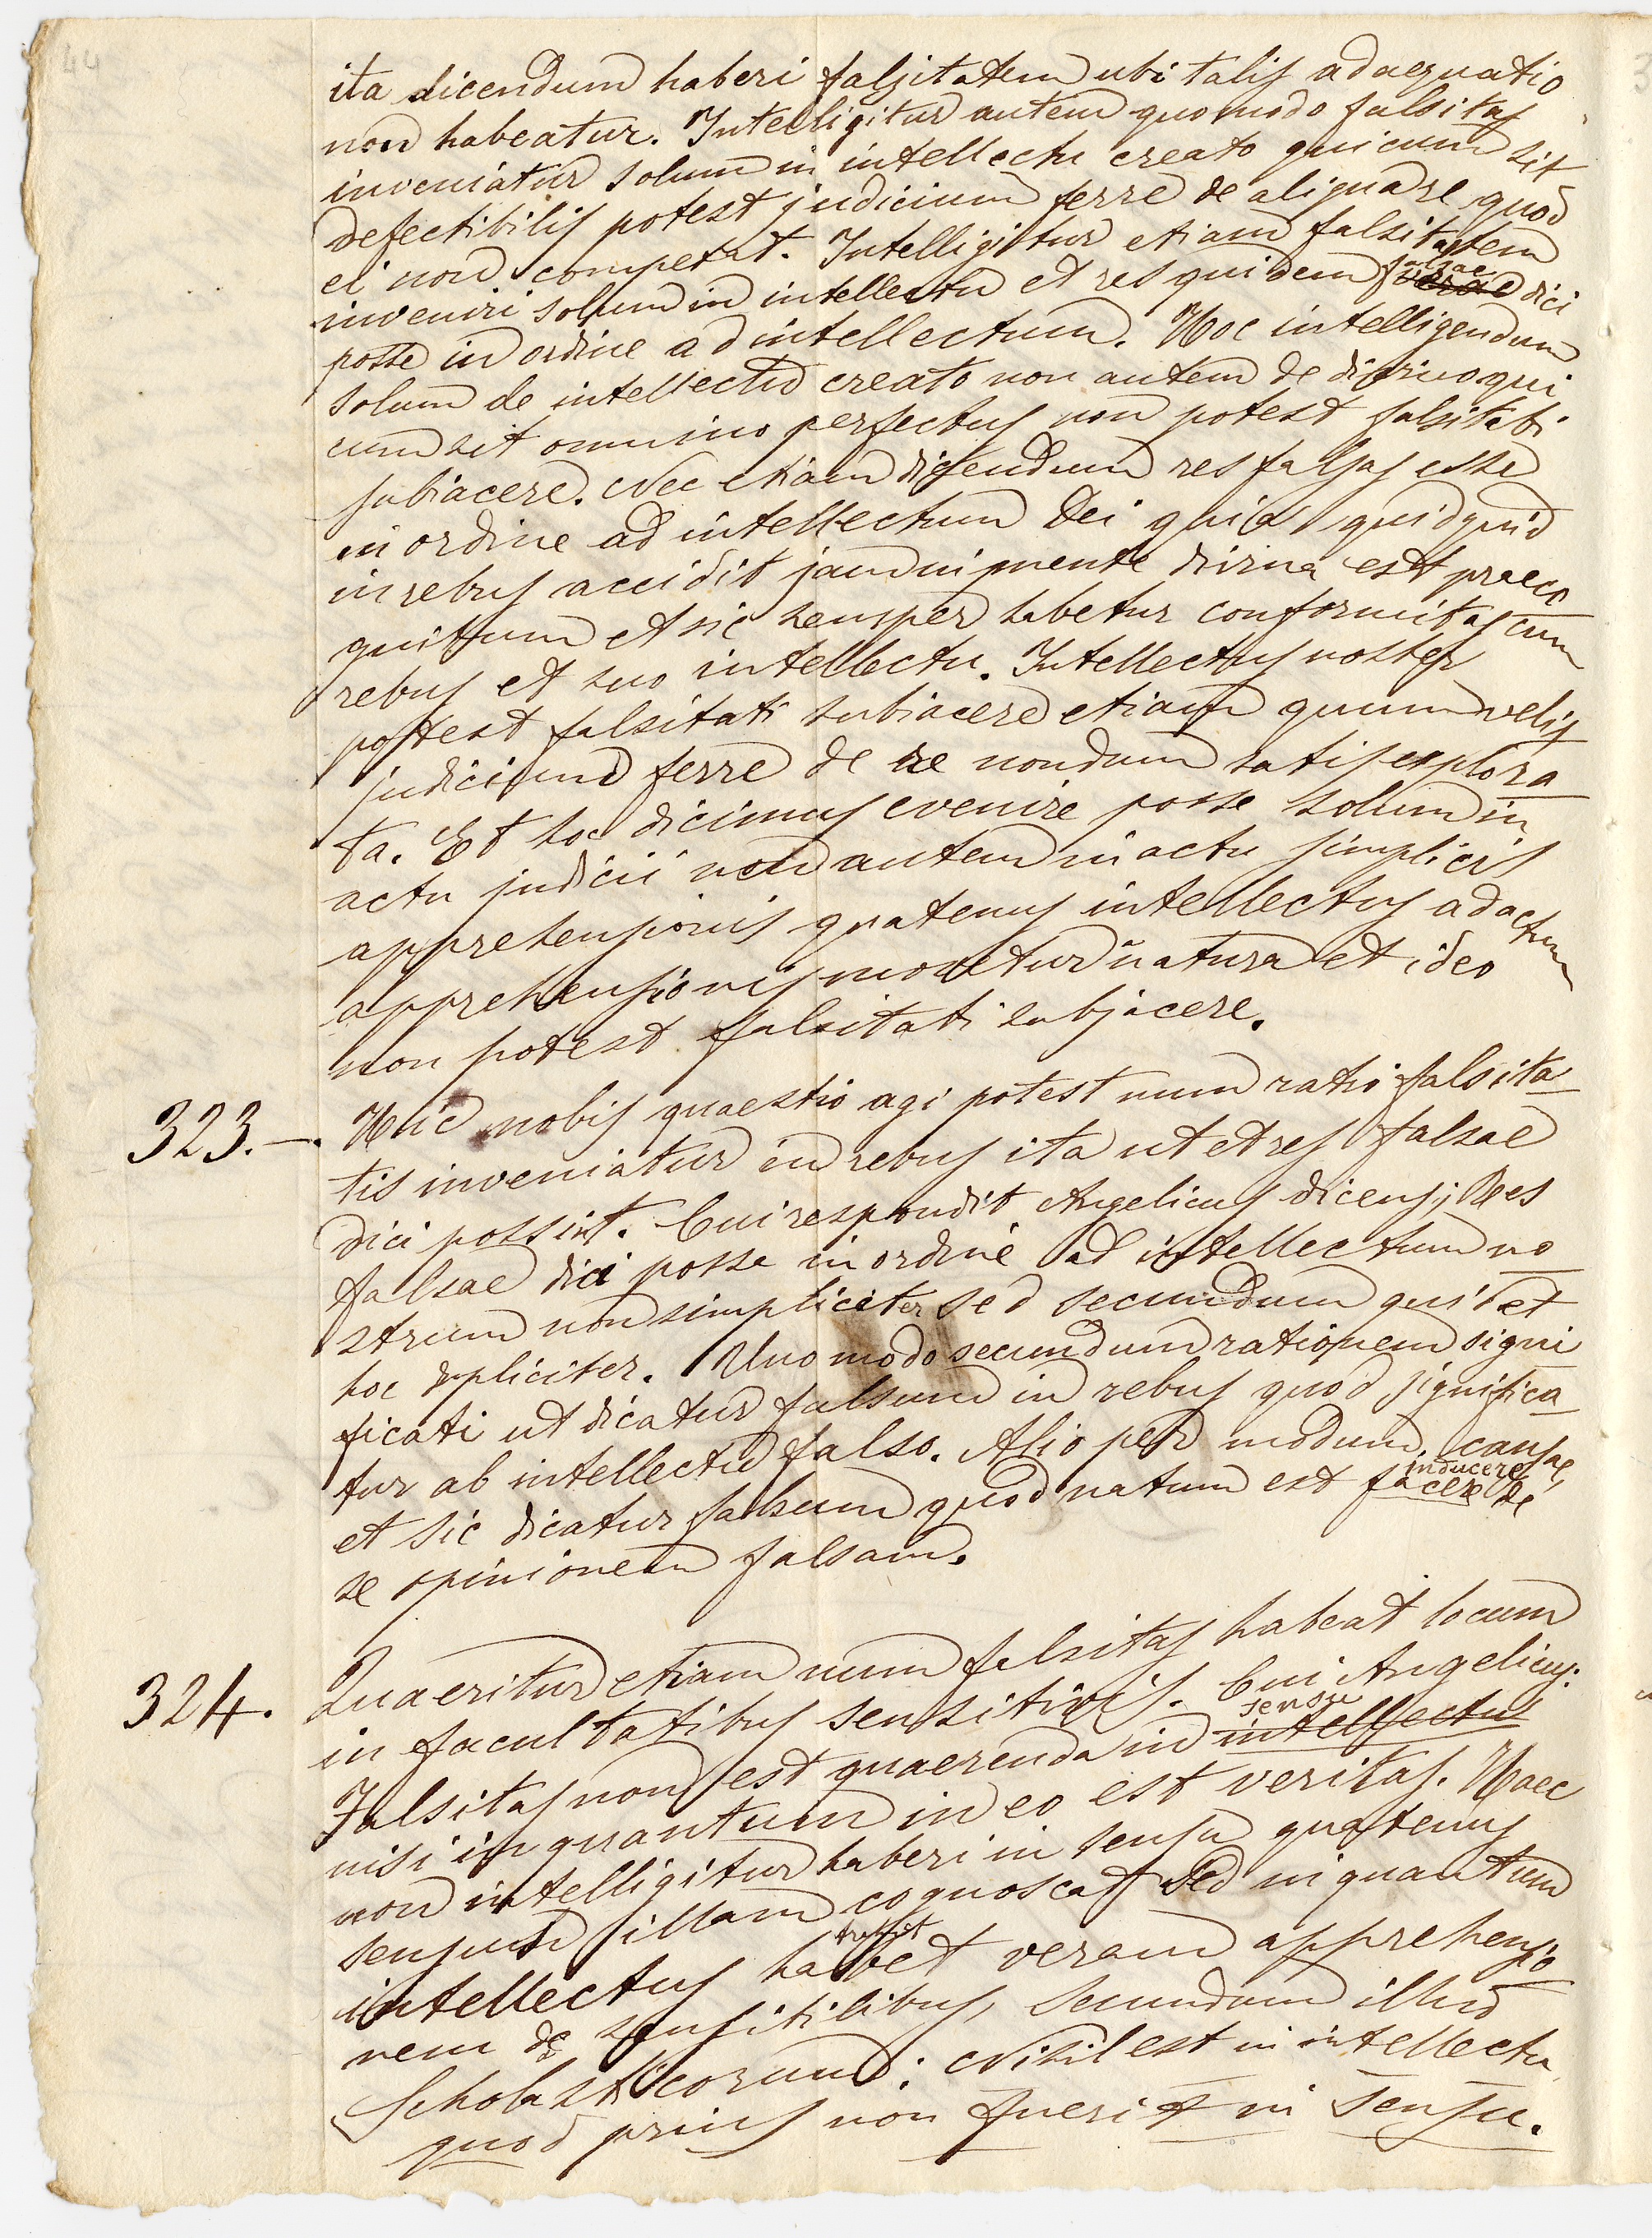 44
ita dicendum haberi falsitatem ubi talis adaequatio
non habeatur. Intelligitur autem quomodo falsitas
inveniatur solum in intellectu creato qui cum sit
defectibilis potest judicium ferre de aliqua re quod
ei non competat. Intelligitur etiam falsitatem
inveniri solum in intellectu et res quidem falsae dici
posse in ordine ad intellectum. Hoc intelligendum
solum de intellectu creato non autem de divino qui
cum sit omnino perfectus non potest falsitati
subiacere. Nec etiam dicendum res falsas esse
in ordine ad intellectum Dei quia quidquid
in rebus accidit jam in mente divina est praeco
gnitum et sic semper habetur conformitas cum
rebus et suo intellectu. Intellectus noster
potest falsitati subiacere etiam quum velis
judicium ferre de re nondum satis explora
ta. Et hoc dicimus evenire posse solum in
actu judicii non autem in actu simplicis
apprehensionis quatenus intellectus ad actum
apprehensionis movetur a natura et ideo
non potest falsitati subjacere.
323.— Huic nobis quaestio agi potest num ratio falsita
tis inveniatur in rebus ita ut et res falsae
dici possint. Cui respondit Angelicus dicens; Res
falsae dici posse in ordine ad intellectum no
strum non simpliciter sed secundum quid et
hoc dupliciter. Uno modo secundum rationem signi
ficati ut dicatur falsum in rebus quod significa
tur ab intellectu falso. Alio per modum causae,
et sic dicatur falsum quod natum est facere inducere de
se opinionem falsam.
324. Quaeritur etiam num falsitas habeat locum
in facultatibus sensitivis. Cui Angelicus:
Falsitas non est quaerenda in intellectu sensu
nisi in quantum in eo est veritas. Haec
non intelligitur haberi in sensu quatenus
sensus illam cognoscat sed in quantum
intellectus habet veram apprehensio
nem de sensibilibus, secundum illud
Scholasticorum: Nihil est in intellectu
quod prius non fuerit in sensu.